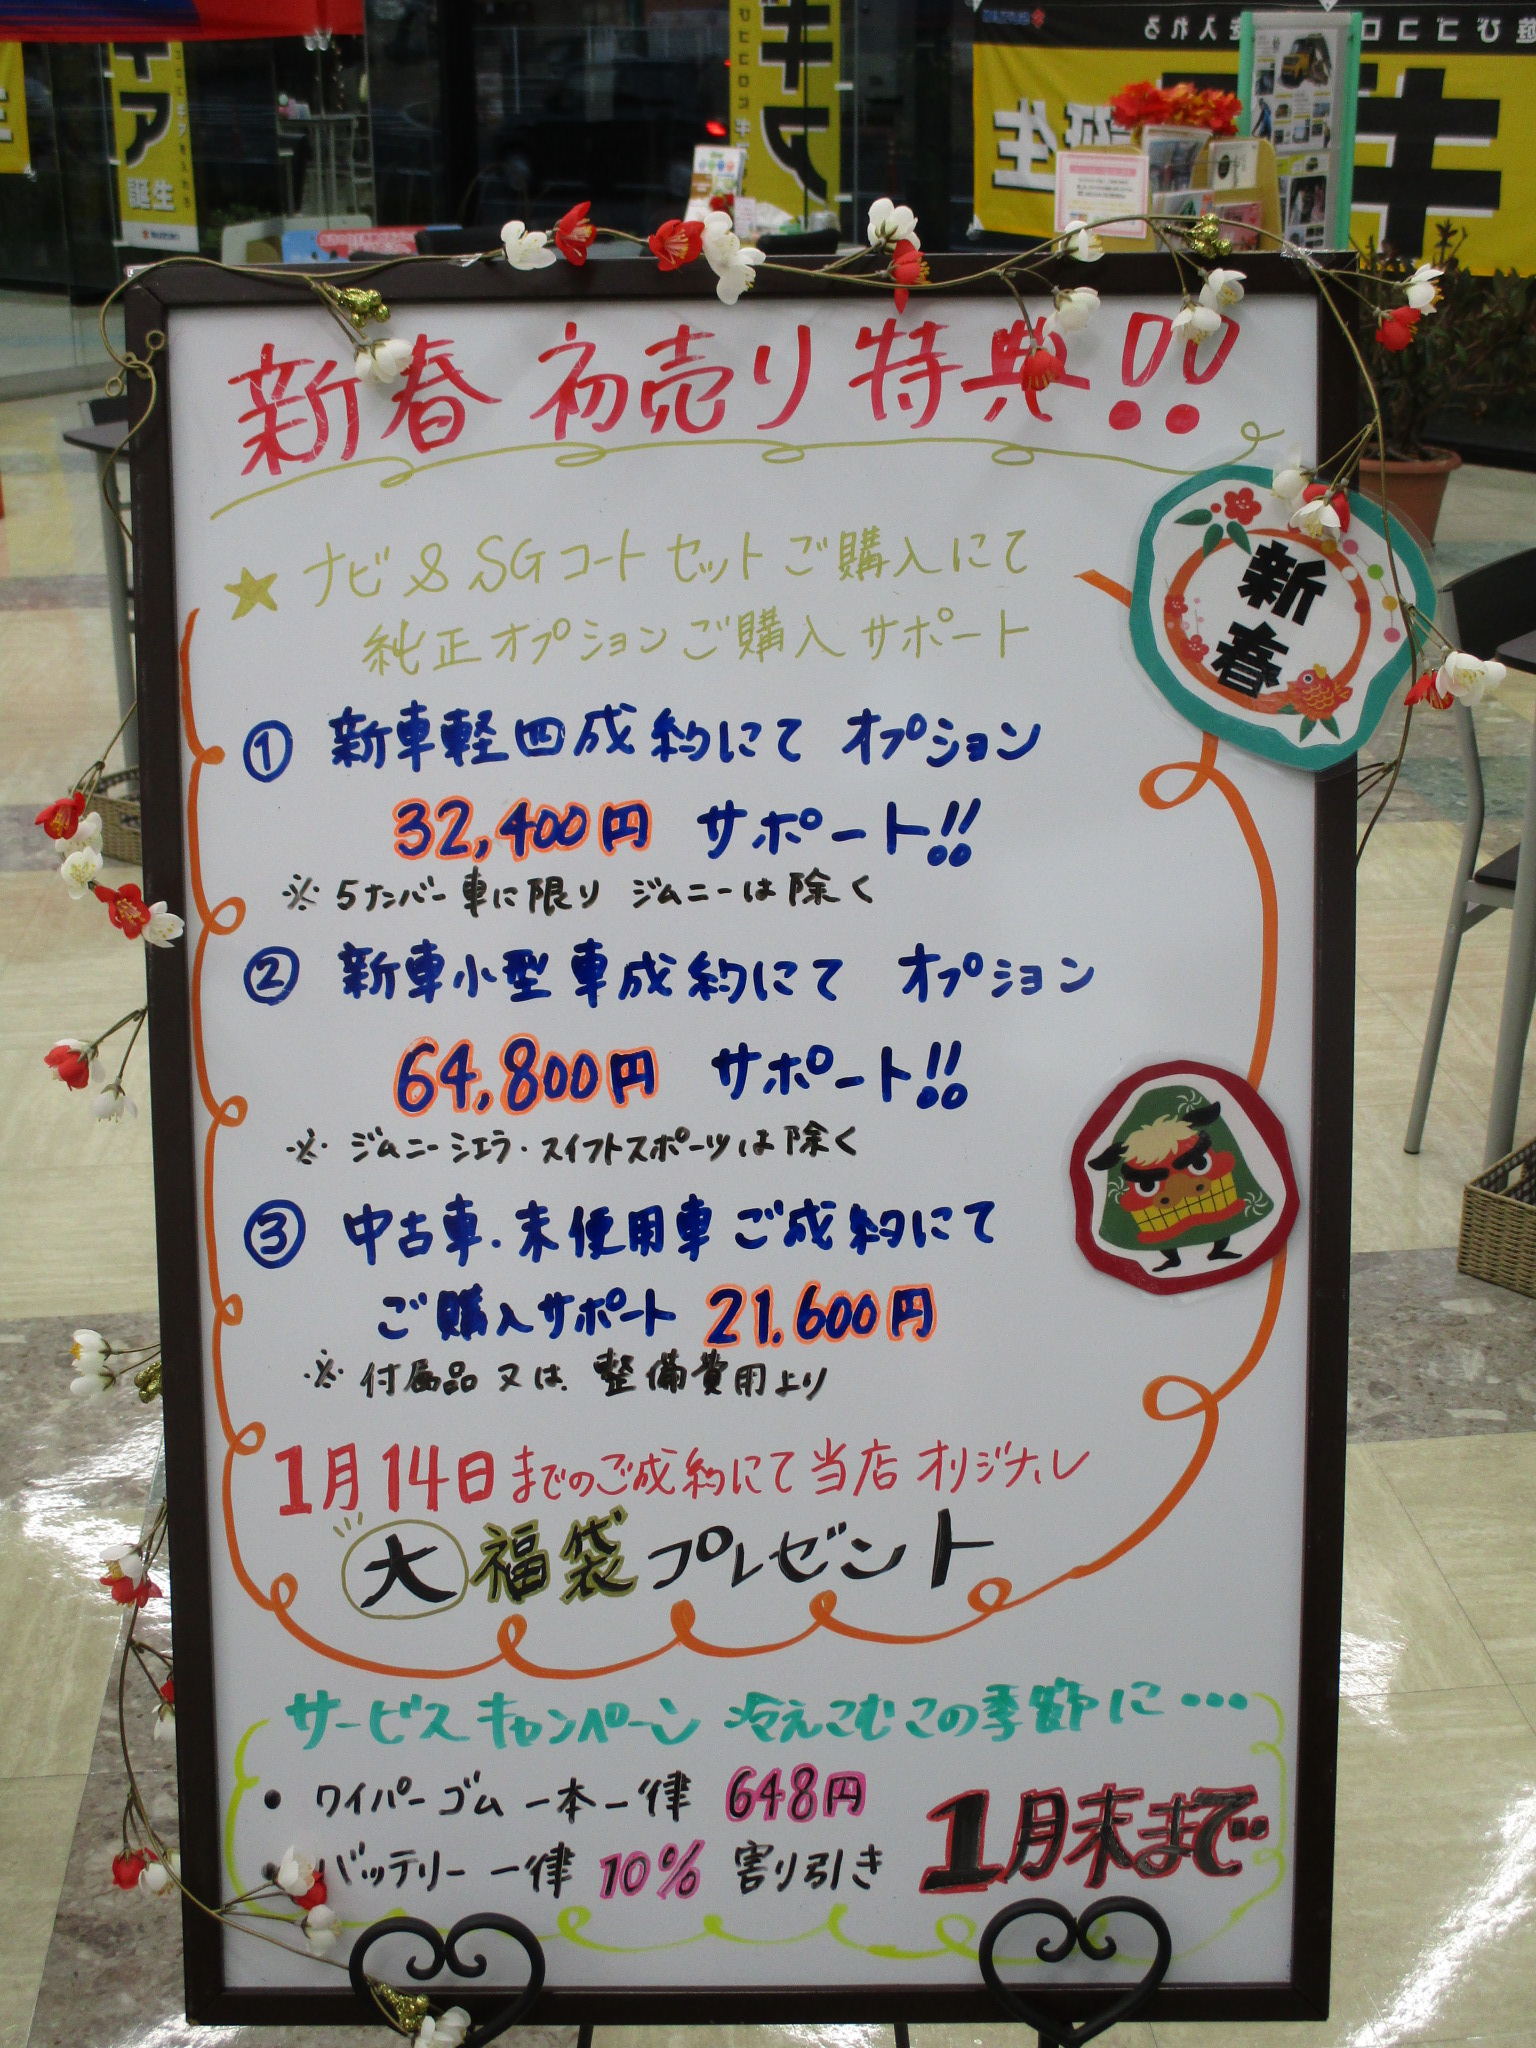 新春 初売り 特典!!
新春
★ ナビ & SGコート セット ご購入にて
純正オプションご購入サポート
① 新車軽四成約にて オプション
32,400円 サポート!!
※ 5ナンバー車に限り ジムニーは除く
② 新車小型車成約にて オプション
64,800円 サポート!!
※ ジムニーシエラ・スイフトスポーツは除く
③ 中古車・未使用車 ご成約にて
ご購入サポート 21.600円
※ 付属品 又は 整備費用より
1月14日までのご成約にて当店オリジナル
大福袋プレゼント
サービスキャンペーン 冷えこむこの季節に…
・ ワイパーゴム 一本一律 648円
・ バッテリー 一律 10% 割り引き
1月末まで
誕生